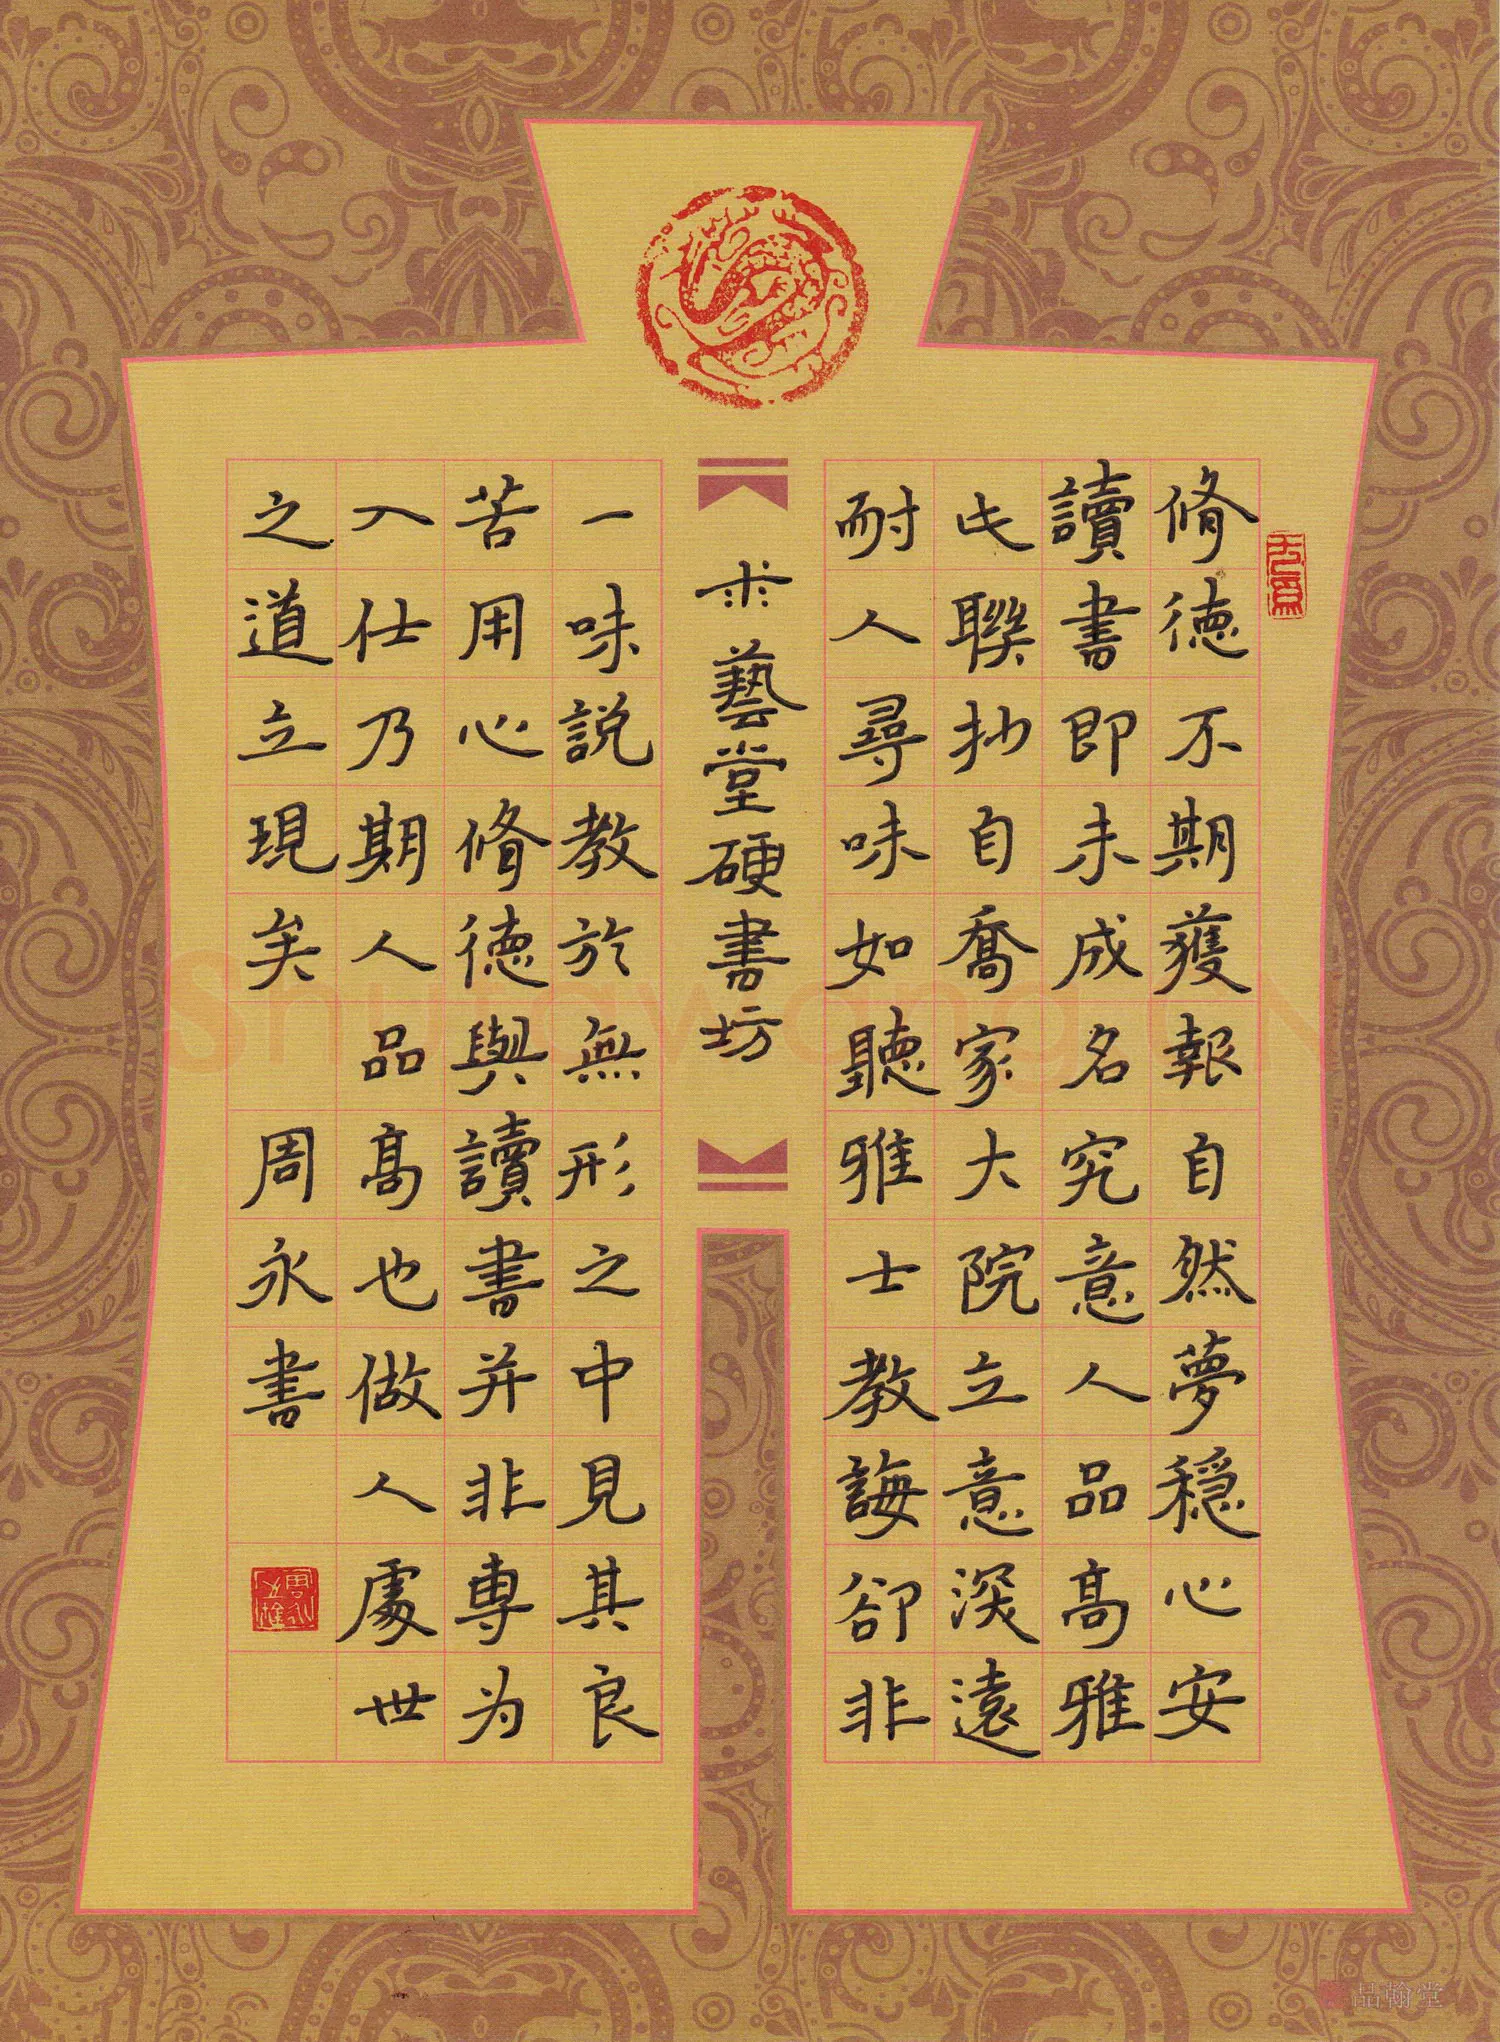 脩德不期獲報自然夢穩心安
讀書即未成名究意人品高雅
此聯抄自喬家大院立意深遠
耐人尋味如聽雅士教誨卻非
求藝堂硬書坊
一味說教於無形之中見其良
苦用心脩德與讀書并非專为
入仕乃期人品高也做人處世
之道立現矣 周永書
品翰堂